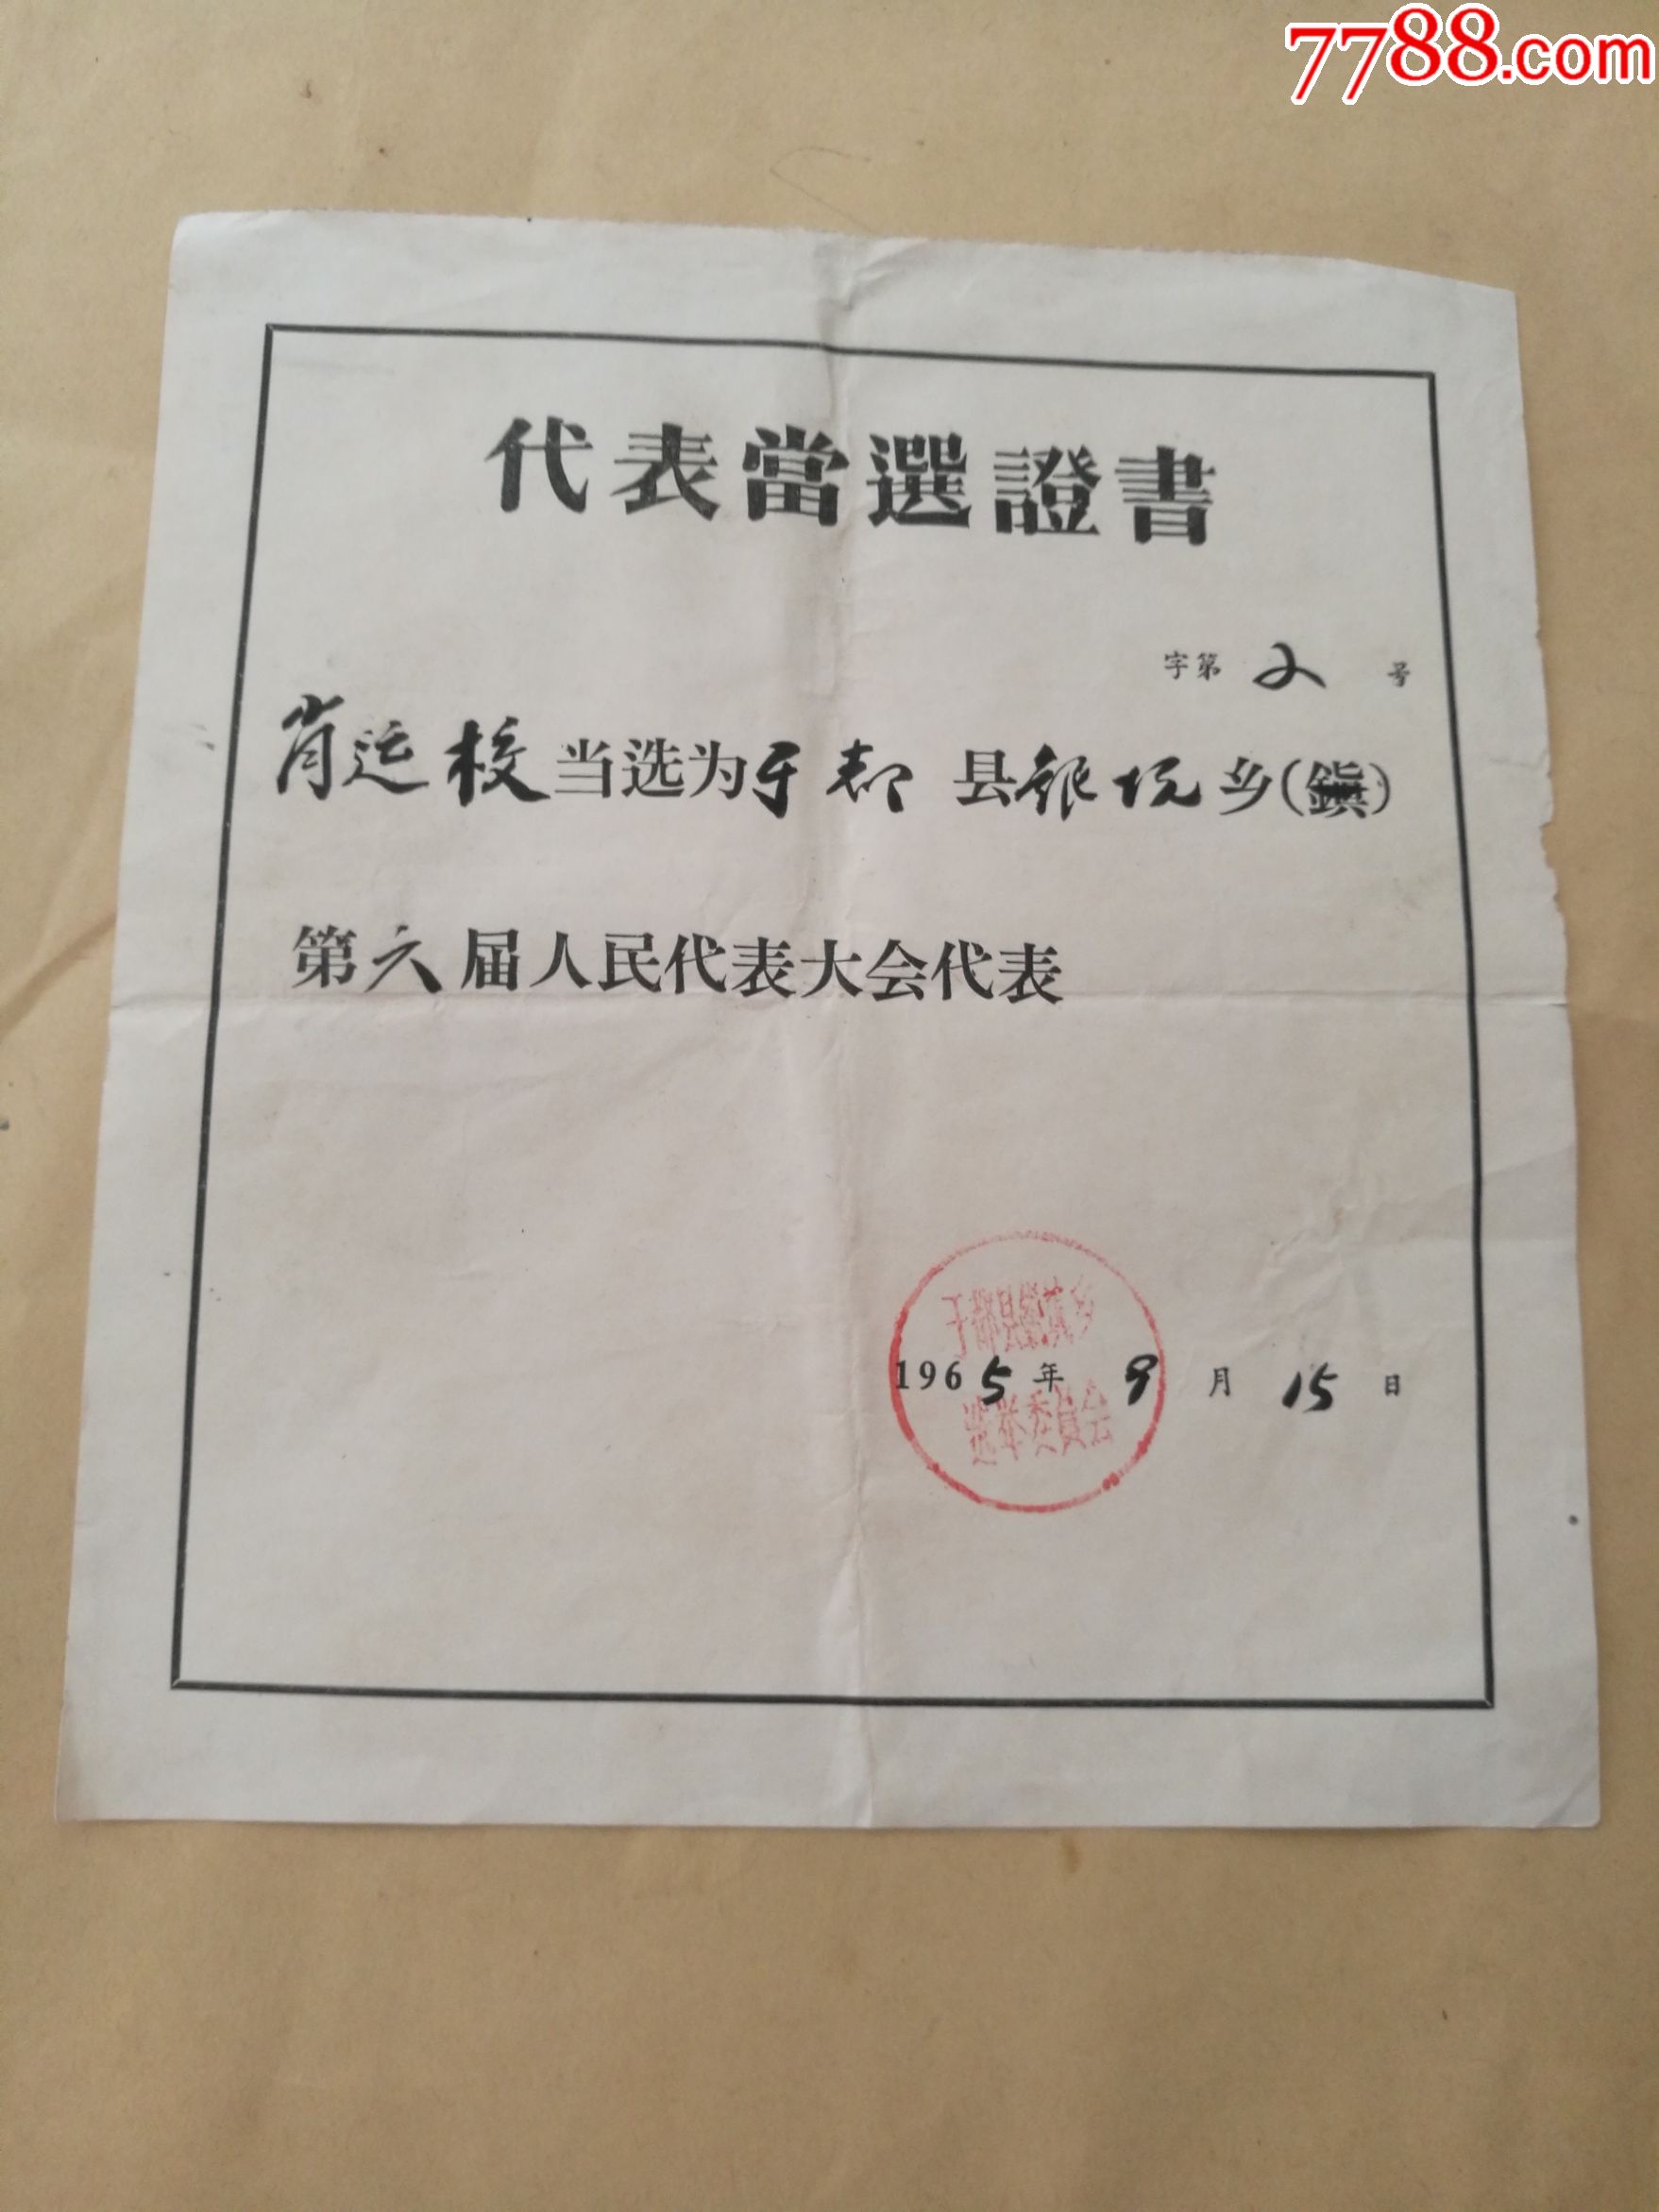 7788.com
代表當選證書
字第 2 号
肖运校当选为于都县银坑乡(鎮)
第六届人民代表大会代表
于都县银坑乡
1965年9月15日
选举委员会